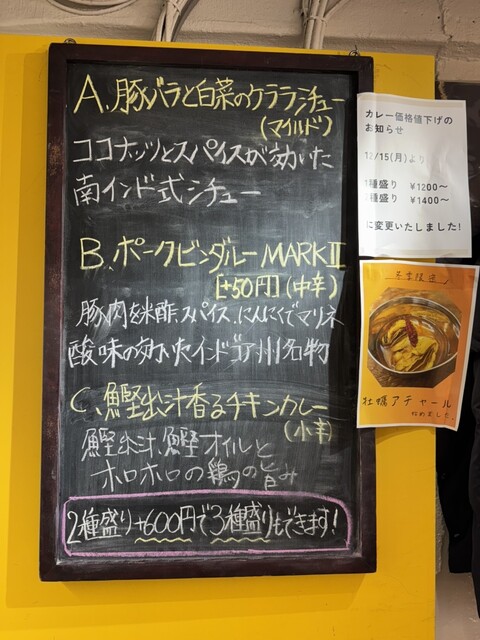 A、豚バラと白菜のケララシチュー
(マイルド)
ココナッツとスパイスが効いた
南インド式シチュー
B、ポークビンダルーMARKⅡ
[+50円](中辛)
豚肉を米酢、スパイス、にんにくでマリネ
酸味の効いたインドゴア州名物
C、鰹出汁香るチキンカレー
(小辛)
鰹出汁、鰹オイルと
ホロホロの鶏の旨み
2種盛り+600円で3種盛りもできます!
カレー価格値下げの
お知らせ
12/15(月)より
種盛り ¥1200〜
種盛り ¥1400〜
に変更いたしました!
限定
牡蠣アチャール
始めました